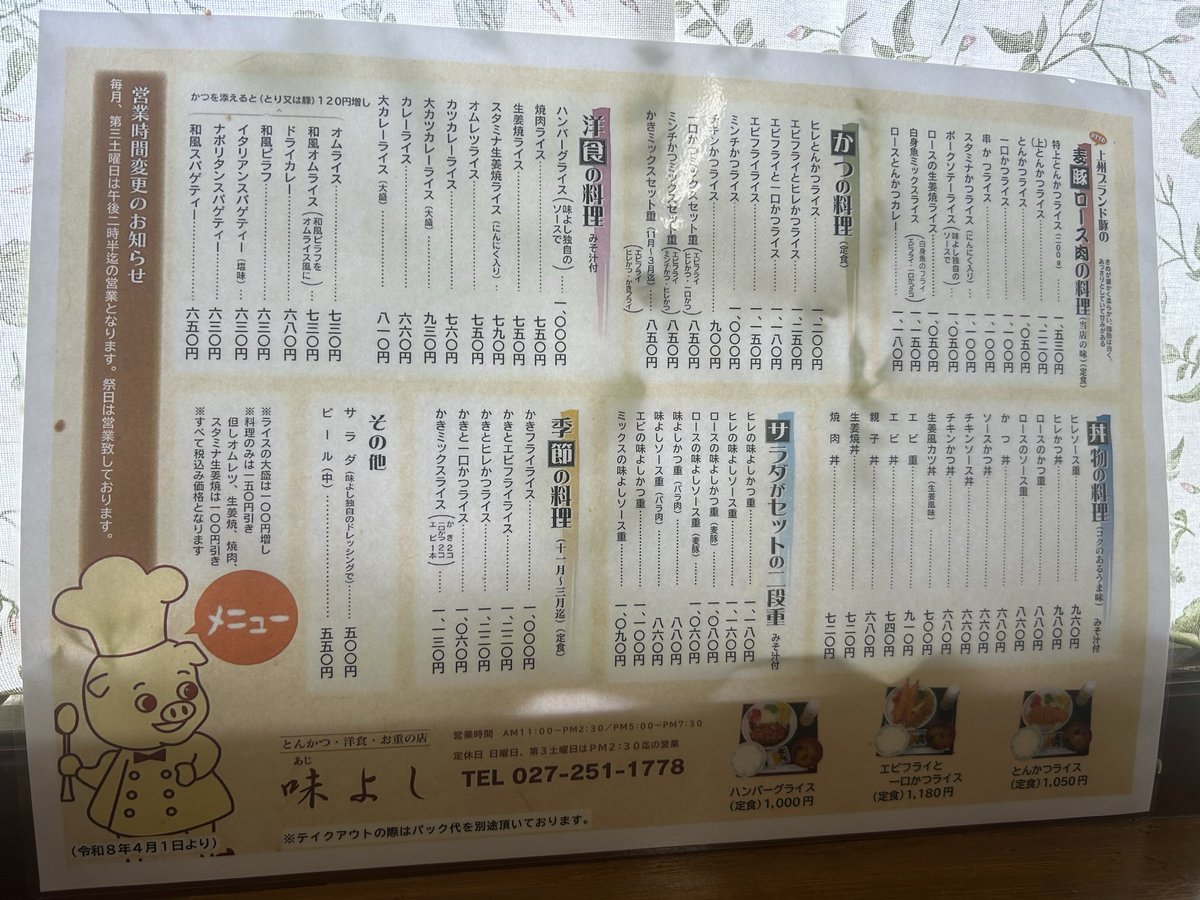 上州ブランド豚の
麦豚ロース肉の料理(当店の味)(定食)
きめが細かく柔らかい。脂肪は白く、
あっさりとしていて甘みがある
特上とんかつライス(200g)……一、五三〇円
(上)とんかつライス……一、二二〇円
とんかつライス……一、〇五〇円
一口かつライス……一、一〇〇円
串かつライス……一、一〇〇円
スタミナかつライス(にんにく入り)……一、一〇〇円
ポークソテーライス(味よし独自のソースで)……一、〇五〇円
ロースの生姜焼ライス……一、〇五〇円
白身魚ミックスライス(白身魚のフライ エビフライ・一口かつ2コ)……一、一五〇円
ロースとんかつカレー……一、一八〇円
かつの料理(定食)
ヒレとんかつライス……一、二〇〇円
エビフライとヒレかつライス……一、二五〇円
エビフライと一口かつライス……一、一八〇円
エビフライライス……一、一五〇円
ミンチかつライス……一、〇〇〇円
チキンかつライス……九〇〇円
一口かつミックスセット重(エビフライ ヒレかつ・一口かつ)……八五〇円
ミンチかつミックスセット重(エビフライ ミンチかつ・ヒレかつ)……八五〇円
かきミックスセット重(11月〜3月迄)(エビフライ ヒレかつ かきフライ)……八五〇円
洋食の料理 みそ汁付
ハンバーグライス(味よし独自のソースで)……一、〇〇〇円
焼肉ライス……七五〇円
生姜焼ライス……七五〇円
スタミナ生姜焼ライス(にんにく入り)……七九〇円
オムレツライス……七五〇円
カツカレーライス……七六〇円
大カツカレーライス(大盛)……九三〇円
カレーライス……六六〇円
大カレーライス(大盛)……八一〇円
かつを添えると(とり又は豚)120円増し
オムライス……七三〇円
和風オムライス(和風ピラフをオムライス風に)……七三〇円
ドライカレー……六八〇円
和風ピラフ……六三〇円
イタリアンスパゲティー(塩味)……六三〇円
ナポリタンスパゲティー……六三〇円
和風スパゲティー……六五〇円
営業時間変更のお知らせ
毎月、第三土曜日は午後二時半迄の営業となります。祭日は営業致しております。
丼物の料理(コクのあるうま味)みそ汁付
ヒレソース重……九六〇円
ヒレかつ丼……九八〇円
ロースのかつ重……八八〇円
ロースのソース重……八六〇円
かつ丼……六八〇円
ソースかつ丼……六六〇円
チキンソース丼……六六〇円
チキンかつ丼……六八〇円
生姜風カツ丼(生姜風味)……七〇〇円
エビ重……九一〇円
エビ丼……七四〇円
親子丼……六八〇円
生姜焼丼……七二〇円
焼肉丼……七二〇円
サラダがセットの二段重 みそ汁付
ヒレの味よしかつ重……一、一八〇円
ヒレの味よしソース重……一、一六〇円
ロースの味よしかつ重(麦豚)……一、〇八〇円
ロースの味よしソース重(麦豚)……一、〇六〇円
味よしかつ重(バラ肉)……八八〇円
味よしソース重(バラ肉)……八六〇円
エビの味よしかつ重……一、一〇〇円
ミックスの味よしソース重……一、〇九〇円
季節の料理(十一月〜三月迄)(定食)
かきフライライス……一、〇〇〇円
かきとエビフライライス……一、二二〇円
かきとヒレかつライス……一、二二〇円
かきと一口かつライス……一、〇六〇円
かきミックスライス(かき2コ 一口かつ2コ エビ1本)……一、一三〇円
その他
サラダ(味よし独自のドレッシングで)……五〇〇円
ビール(中)……五五〇円
※ライスの大盛は一〇〇円増し
※料理のみは一五〇円引き
但しオムレツ、生姜焼、焼肉、
スタミナ生姜焼は一〇〇円引き
※すべて税込み価格となります
メニュー
とんかつ・洋食・お重の店
あじ
味よし
営業時間 AM11:00〜PM2:30/PM5:00〜PM7:30
定休日 日曜日、第3土曜日はPM2:30迄の営業
TEL 027-251-1778
※テイクアウトの際はパック代を別途頂いております。
ハンバーグライス
(定食)1,000円
エビフライと
一口かつライス
(定食)1,180円
とんかつライス
(定食)1,050円
(令和8年4月1日より)